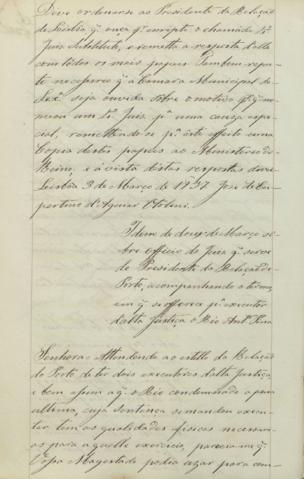 Deve ordenar-se ao Presidente da Relação
de Lisboa q. ouça p. escripto o chamado 1.º
Juiz Substituto, e remetta a resposta d'elle
com todos os mais papeis. Tambem repu-
to necessario q. a Camara Municipal de
seja ouvida sobre o motivo p. q. no-
meou um 1.º Juiz p.ª uma causa espe-
cial, remettendo-se p.ª este effeito uma
Copia destes papeis ao Ministerio do
Reino, e á vista destas respostas direi
Lisboa 3 de Março de 1837 José de Cu-
pertino d'Aguiar Ottolini.
Idem de doze de Março so-
bre officio do Juiz q. serve
de Presidente da Relação do
Porto, acompanhando o termo,
em q. se offerece p.ª executor
d'alta Justiça o Réo Ant.º
Senhora = Attendendo ao estillo da Relação
do Porto de ter dois executores d'alta Justiça,
e bem assim a q. o Réo condemnado a pena
ultima, cuja sentença se mandou execu-
tar tem as qualidades fisicas necessari-
as para aquelle exercicio, parecia-me q.
Vossa Magestade podia usar para com